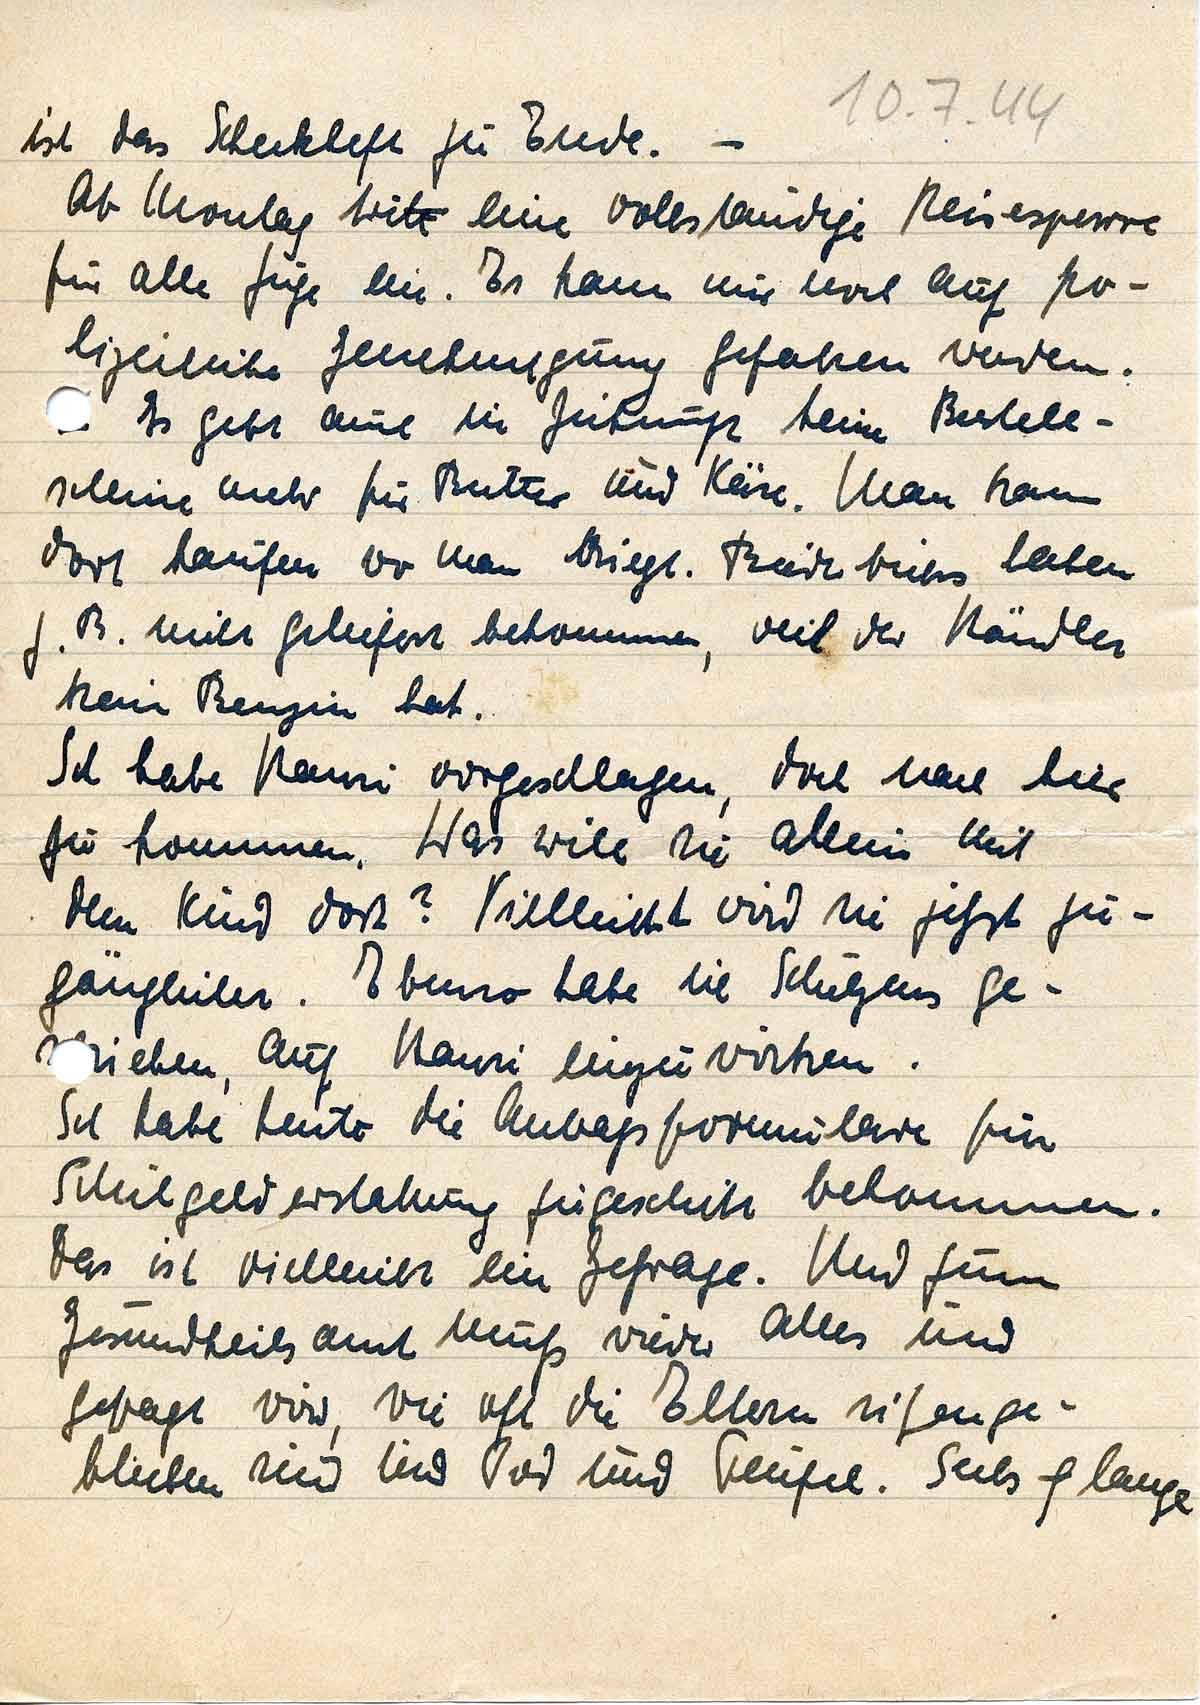 10.7.44
ist das Scheckheft zu Ende. –
Ab Montag tritt eine vollständige Reisesperre
für alle Züge ein. Es kann nur noch auf po-
lizeiliche Genehmigung gefahren werden.
Es gibt auch in Zukunft keine Bestell-
scheine mehr für Butter und Käse. Man kann
dort kaufen wo man kriegt.
z. B. nicht geliefert bekommen, weil der Händler
kein Benzin hat.
Ich habe Hanni vorgeschlagen, doch nach hier
zu kommen. Was will sie allein mit
dem Kind dort? Vielleicht wird sie jetzt zu-
gänglicher. Ebenso habe ich Schützens ge-
schrieben, auf Hanni einzuwirken.
Ich habe heute die Antragsformulare für
Schulgelderstattung zugeschickt bekommen.
Das ist vielleicht ein Gefrage. Und zum
Gesundheitsamt muß wieder alles und
gefragt wird, wie oft die Eltern sitzenge-
blieben sind und Tod und Teufel. Sechs lange